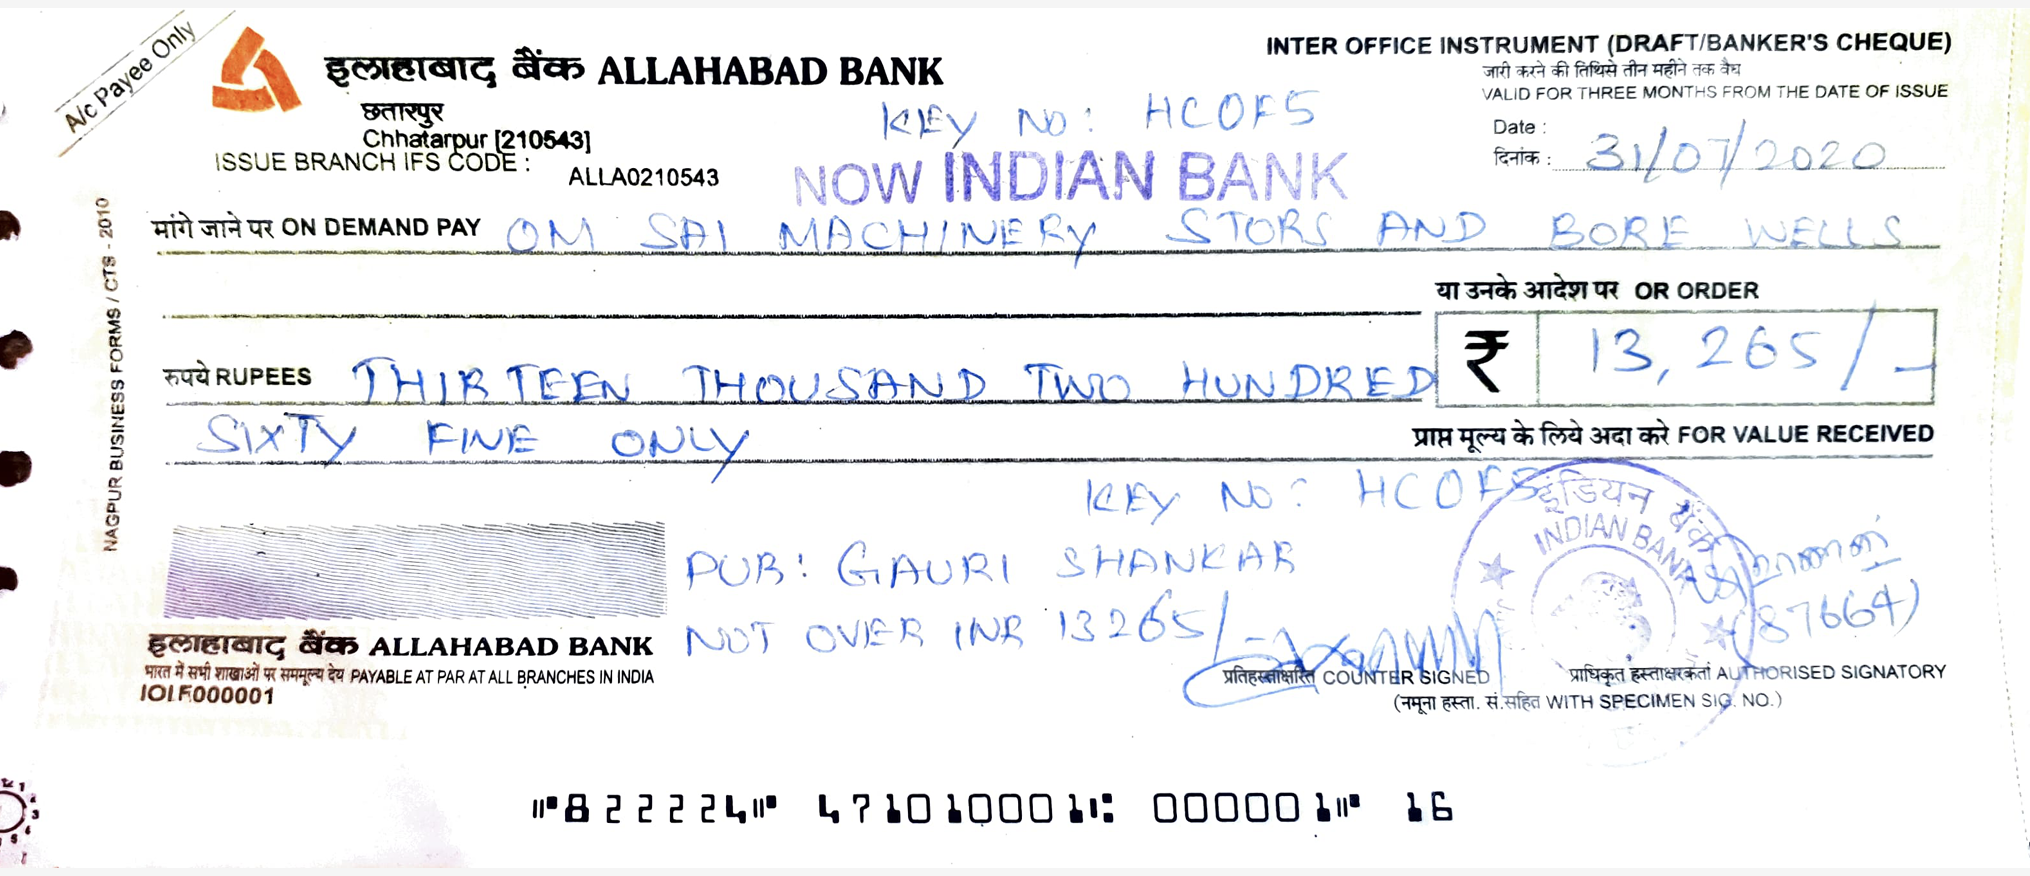 A/c Payee Only
इलाहाबाद बैंक ALLAHABAD BANK
छतारपुर
Chhatarpur [210543]
ISSUE BRANCH IFS CODE : ALLA0210543
INTER OFFICE INSTRUMENT (DRAFT/BANKER'S CHEQUE)
जारी करने की तिथिसे तीन महीने तक वैध
VALID FOR THREE MONTHS FROM THE DATE OF ISSUE
KEY NO: HCOF5
Date :
दिनांक : 31/07/2020
NOW INDIAN BANK
मांगे जाने पर ON DEMAND PAY OM SAI MACHINERY STORS AND BORE WELLS
या उनके आदेश पर OR ORDER
₹ 13,265/-
रुपये RUPEES THIRTEEN THOUSAND TWO HUNDRED
SIXTY FINE ONLY
प्राप्त मूल्य के लिये अदा करे FOR VALUE RECEIVED
NAGPUR BUSINESS FORMS / CTS - 2010
KEY NO: HCOF5
इंडियन बैंक
INDIAN BANK
PUR: GAURI SHANKAR
NOT OVER INR 13265/-
(87664)
इलाहाबाद बैंक ALLAHABAD BANK
भारत में सभी शाखाओं पर सममूल्य देय PAYABLE AT PAR AT ALL BRANCHES IN INDIA
IOI F000001
प्रतिहस्ताक्षरित COUNTER SIGNED
प्राधिकृत हस्ताक्षरकर्ता AUTHORISED SIGNATORY
(नमूना हस्ता. सं.सहित WITH SPECIMEN SIG. NO.)
⑈822224⑈ 471010001⑆ 000001⑈ 16